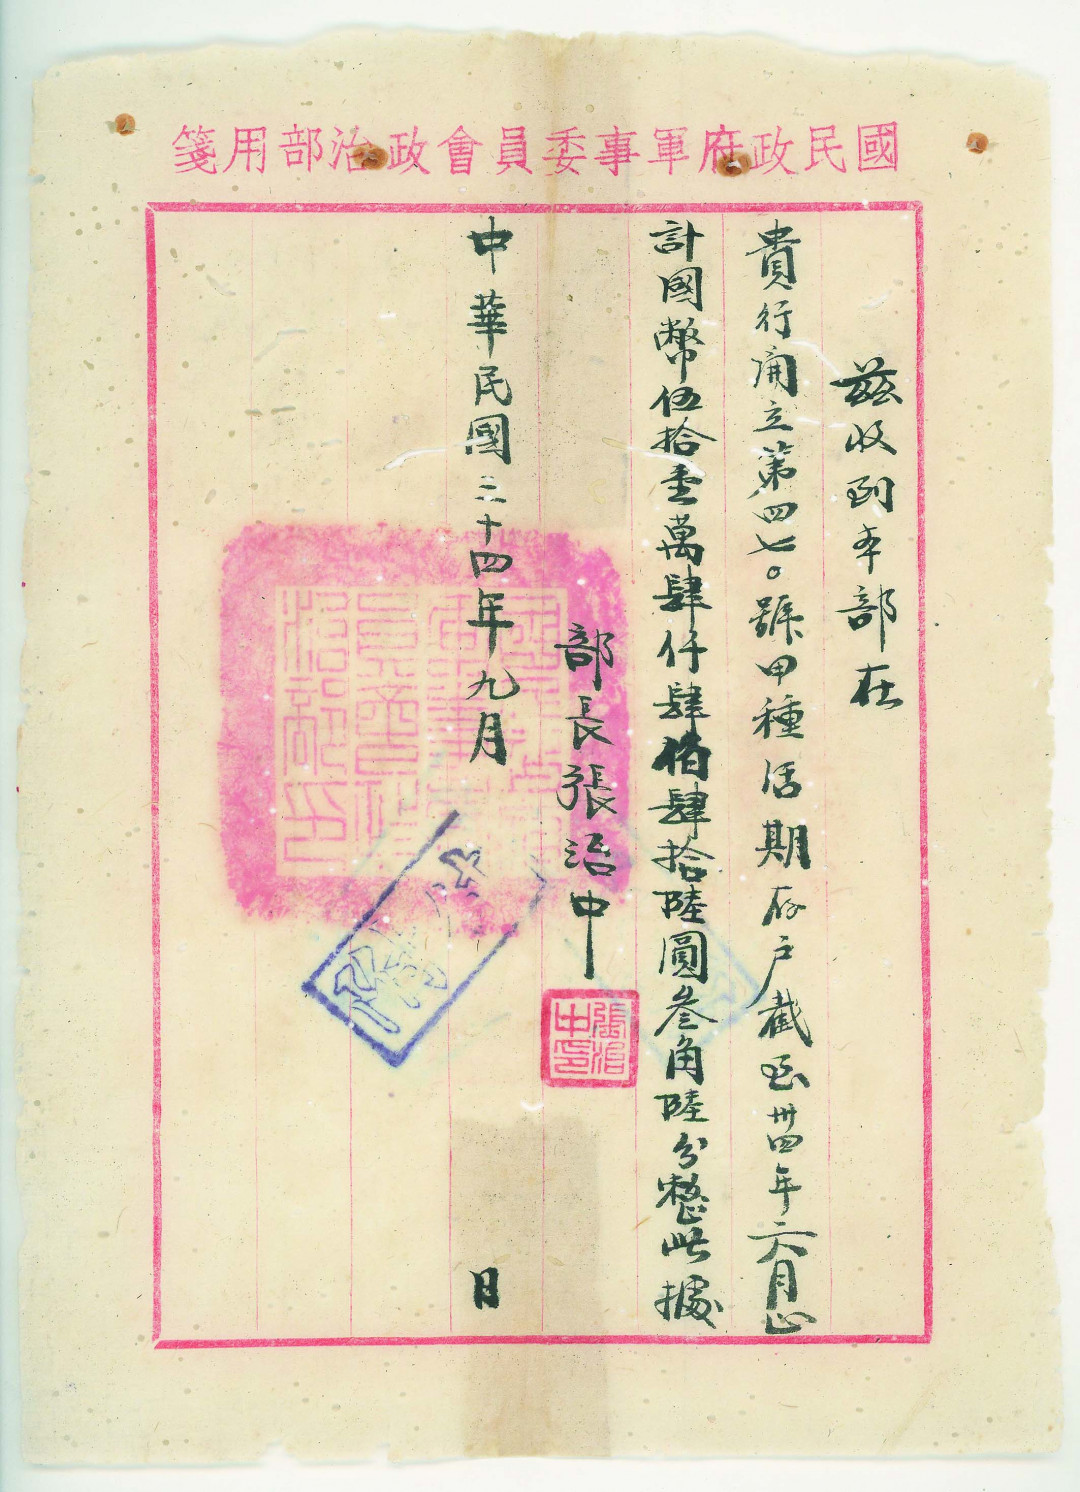 國民政府軍事委員會政治部用箋
茲收到本部在
貴行開立第四七〇號甲種活期存戶截至卅四年六月止
計國幣伍拾壹萬肆仟肆佰肆拾陸圓叁角陸分整此據
部長張治中
張治中印
中華民國三十四年九月 日